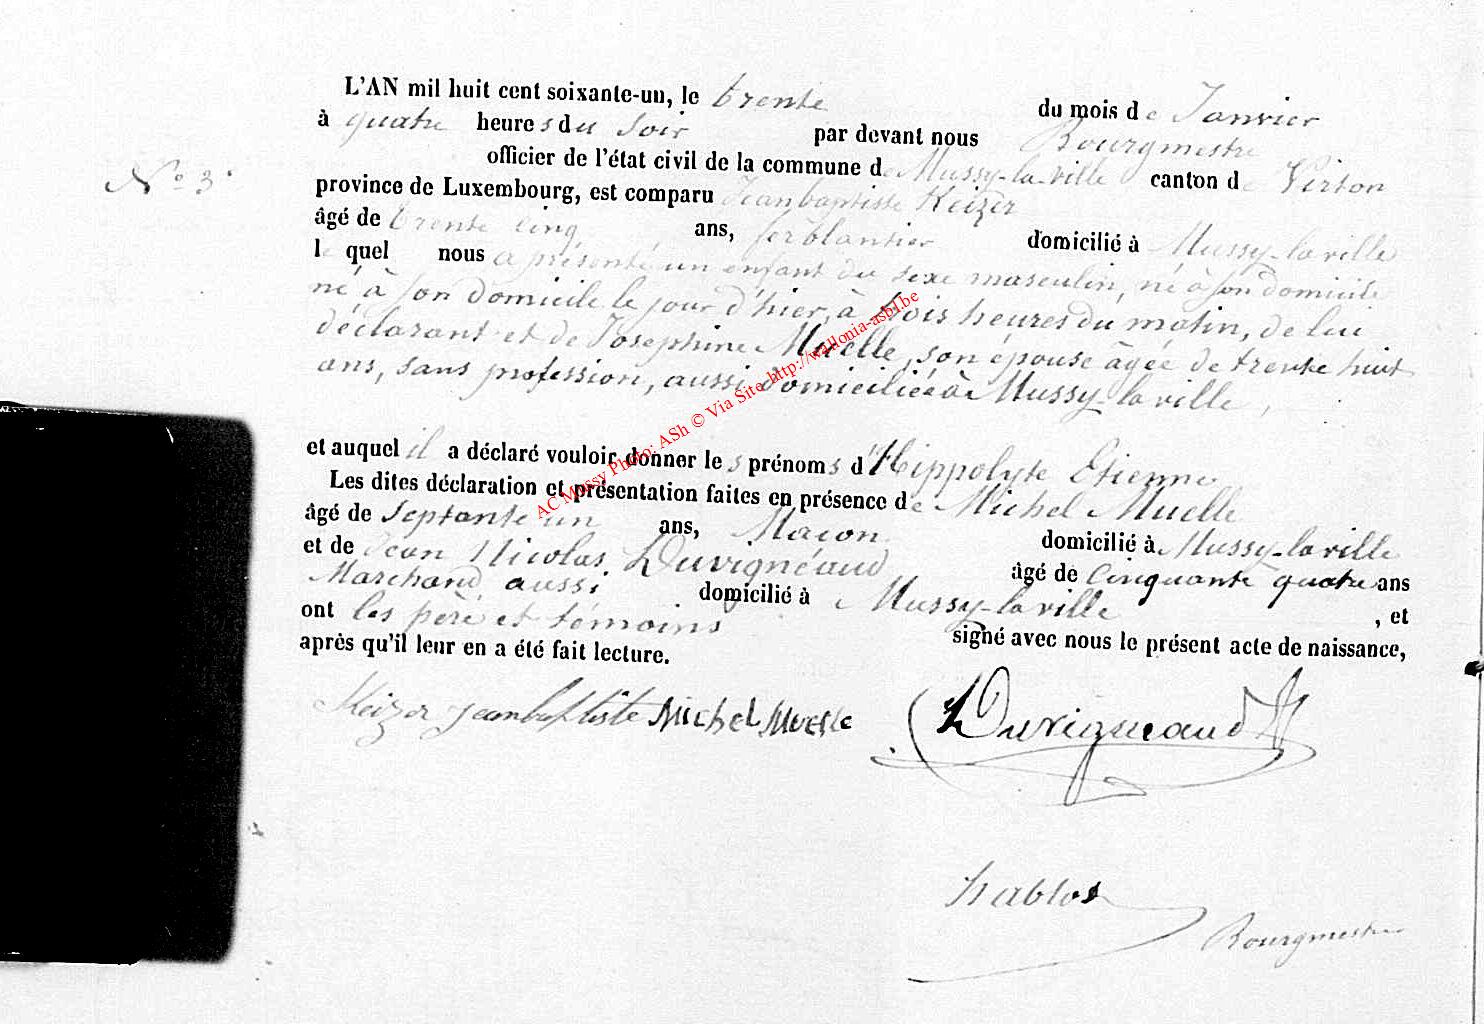 L'AN mil huit cent soixante-un, le trente du mois de Janvier
à quatre heures du soir par devant nous Bourgmestre
officier de l'état civil de la commune de Mussy-la-ville canton de Virton
N° 3.
province de Luxembourg, est comparu Jeanbaptiste Keizer
âgé de trente cinq ans, ferblantier domicilié à Mussy-la ville
le quel nous a présenté un enfant du sexe masculin, né à son domicile
né à son domicile le jour d'hier, à trois heures du matin, de lui
déclarant et de Josephine Muelle, son épouse âgée de trente huit
ans, sans profession, aussi domiciliée à Mussy-la ville,
et auquel il a déclaré vouloir donner les prénoms d'Hippolyte Etienne
Les dites déclaration et présentation faites en présence de Michel Muelle
âgé de Septante un ans, Maçon domicilié à Mussy-la ville
et de Jean Nicolas Duvignéaud âgé de cinquante quatre ans
Marchand aussi domicilié à Mussy-la ville, et
ont les père et témoins signé avec nous le présent acte de naissance,
après qu'il leur en a été fait lecture.
Keizer jeanbaptiste Michel Muelle Duvigneaud
Bourgmestre
AC Mussy Photo: ASh © Via Site http://wallonia-asbl.be